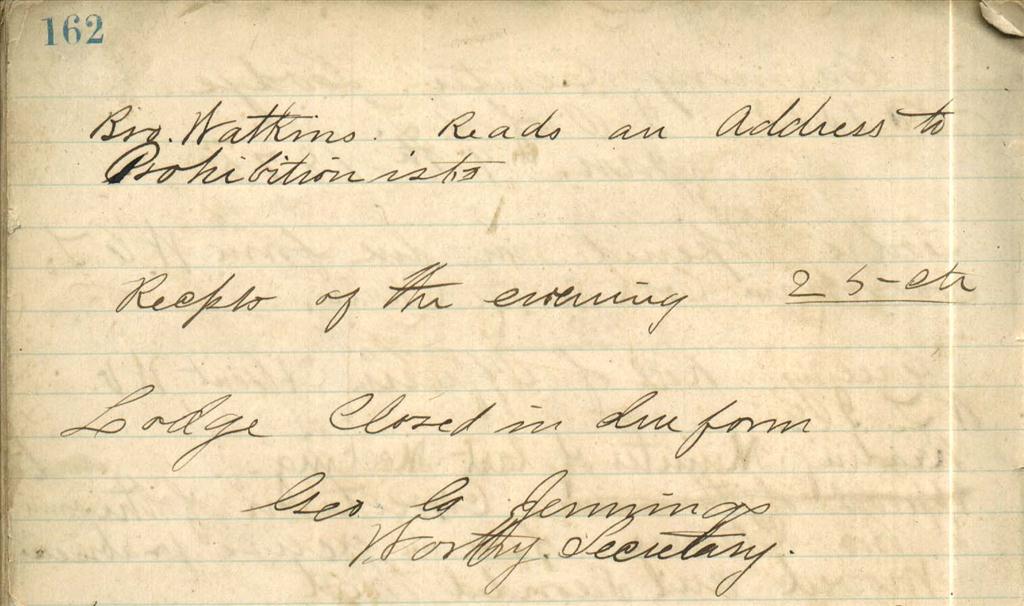 162
Bro. Watkins. Reads an Address to
Prohibitionists
Recpts of the evening 25 cts
Lodge Closed in due form
Geo G Jennings
Worthy. Secretary.